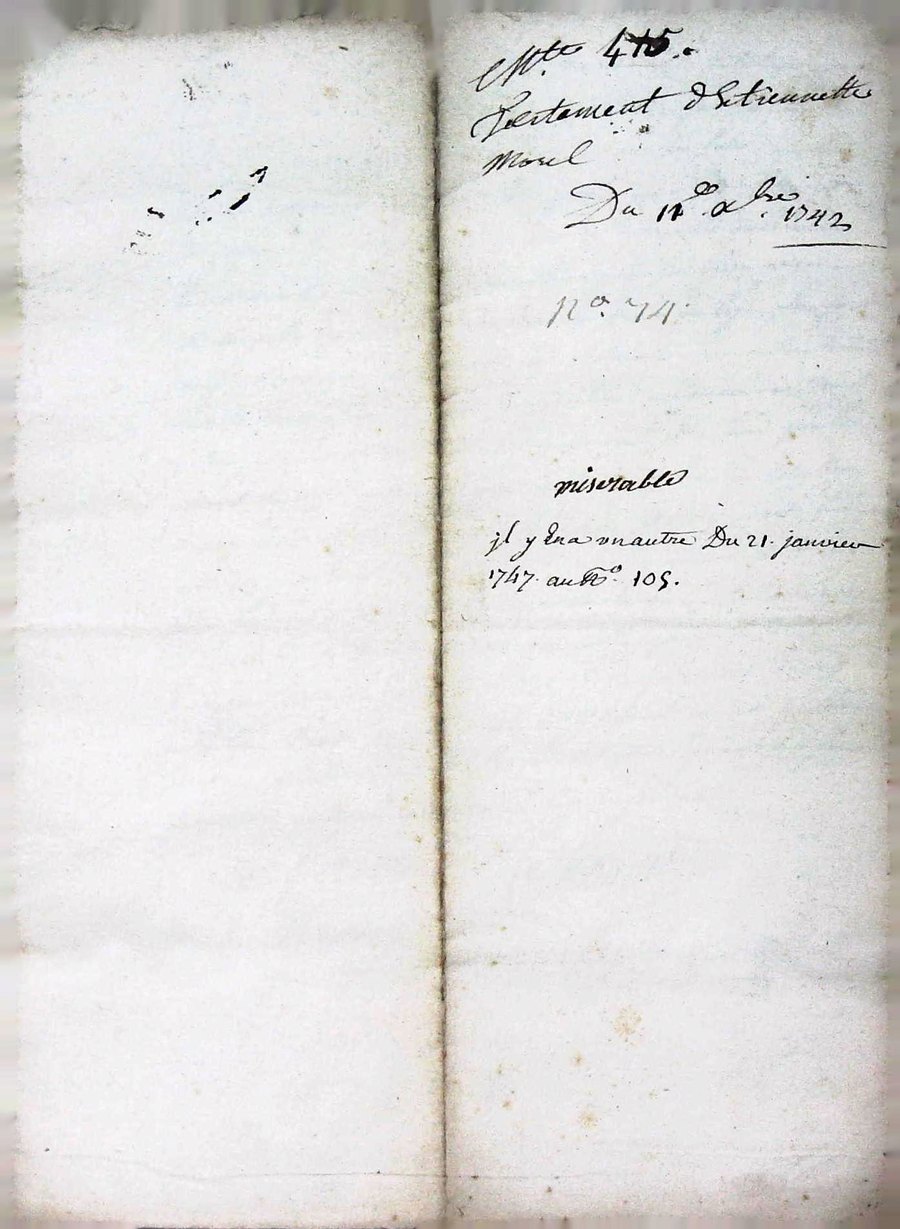 Testament d'Estiennette
Morel
Du 11e xbre 1742
No. 74.
miserable
jl y En a un autre Du 21. janvier
1747. au No. 105.